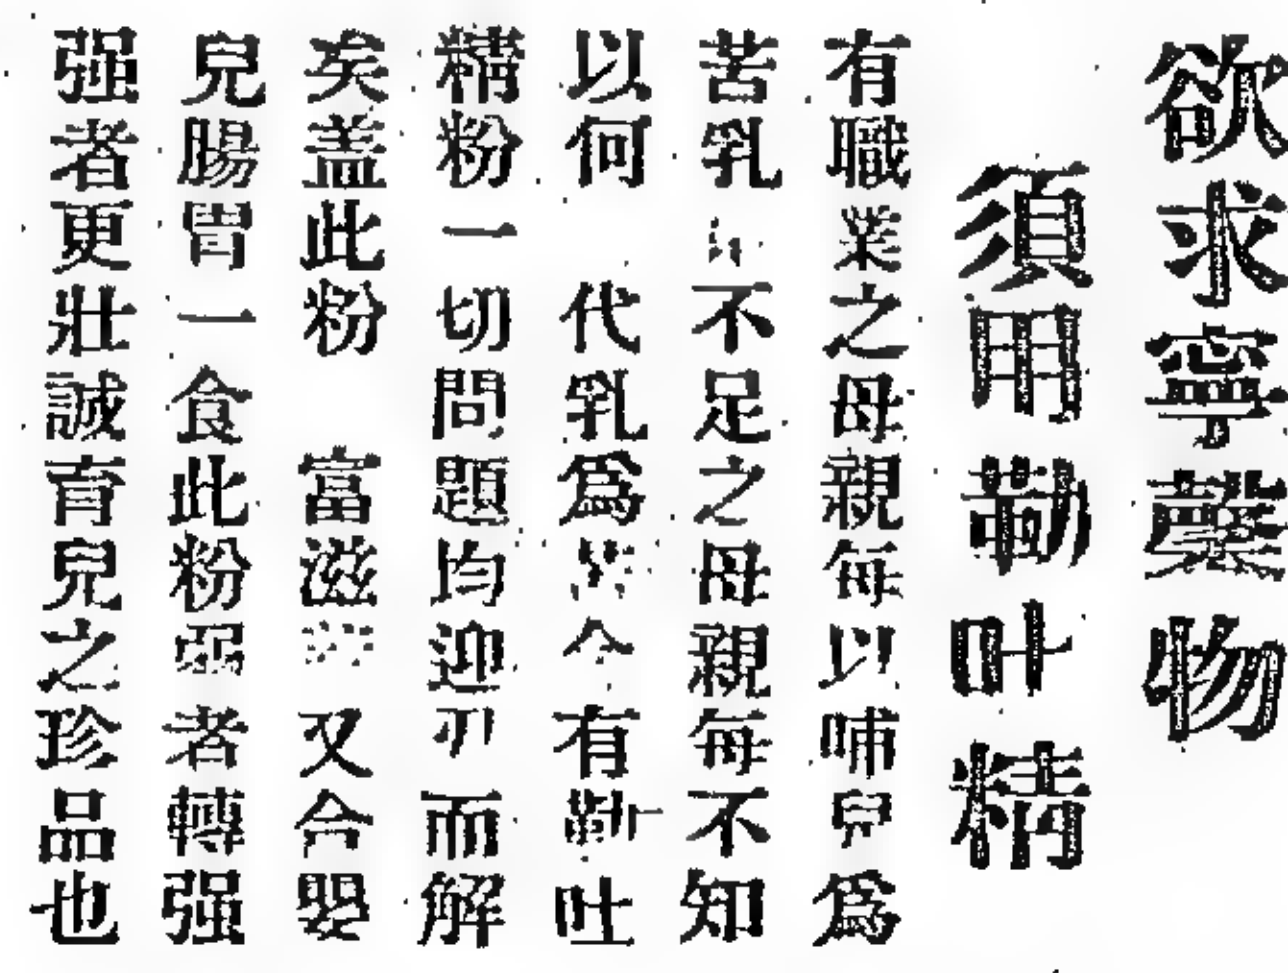 欲求寧馨物
須用勒吐精
有職業之母親每以哺兒爲
苦乳不足之母親每不知
以何代乳爲今有勒吐
精粉一切問題均迎刃而解
矣盖此粉富滋又合嬰
兒腸胃一食此粉弱者轉强
强者更壯誠育兒之珍品也